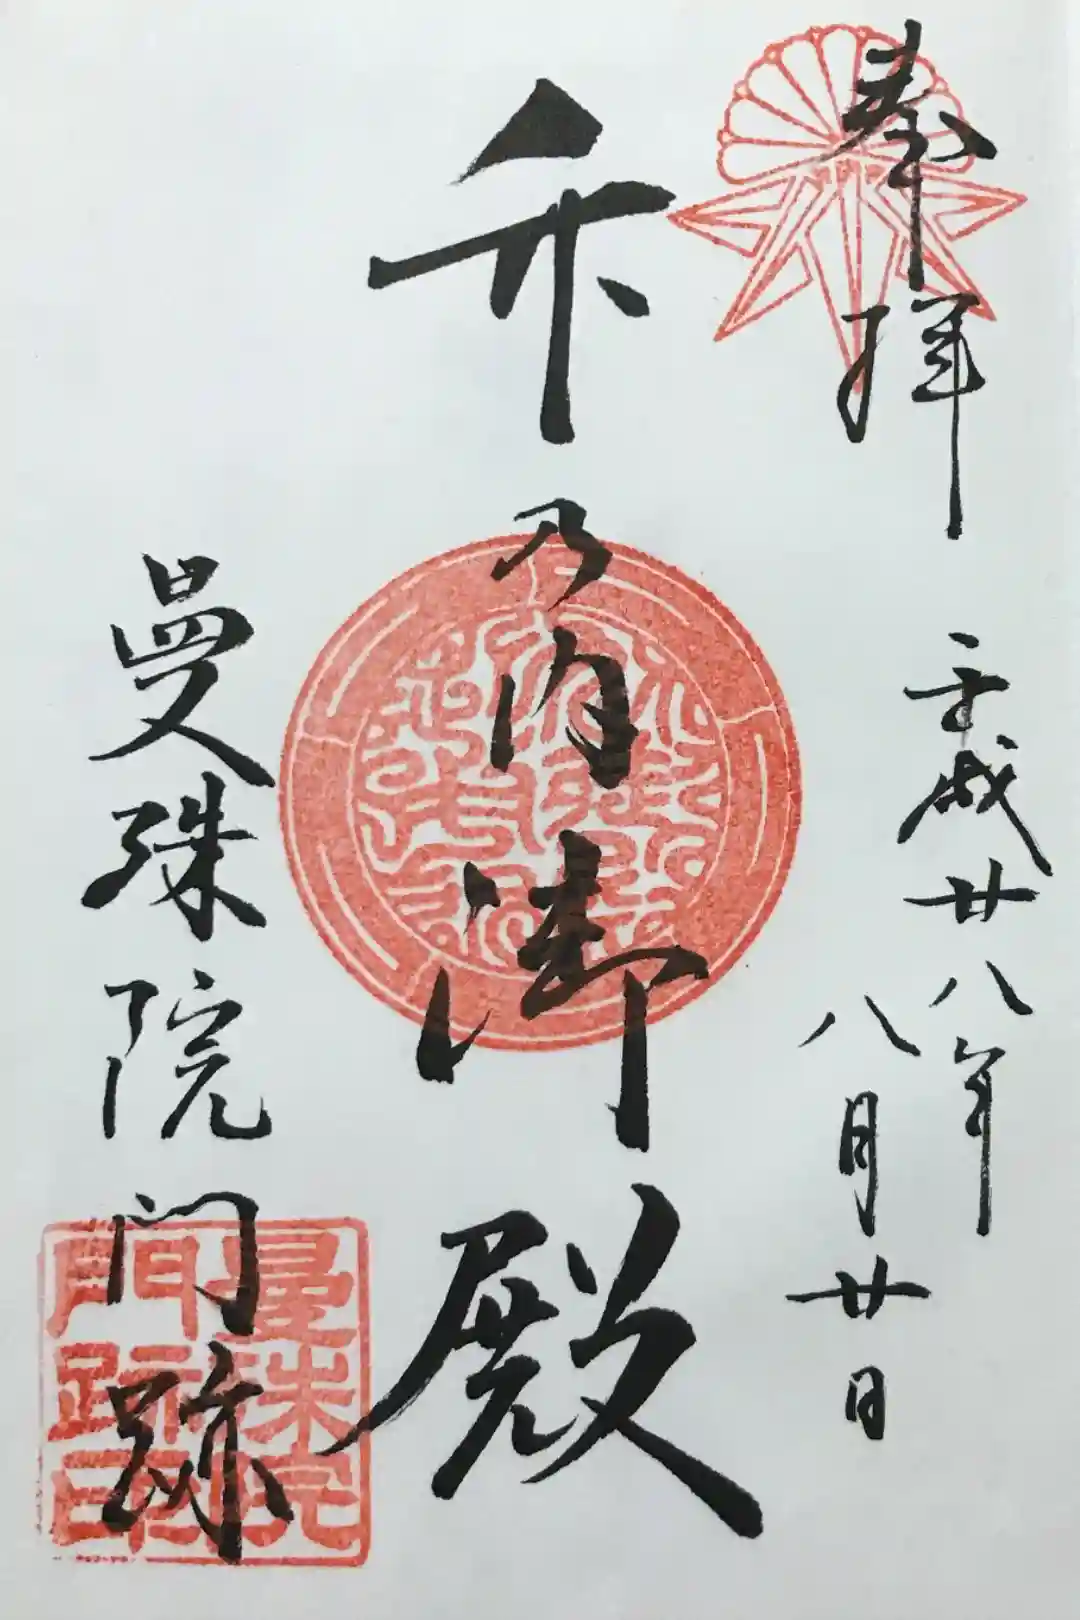 奉拝
平成廿八年
八月廿日
竹乃内御殿
曼殊院門跡
曼殊院
門跡印